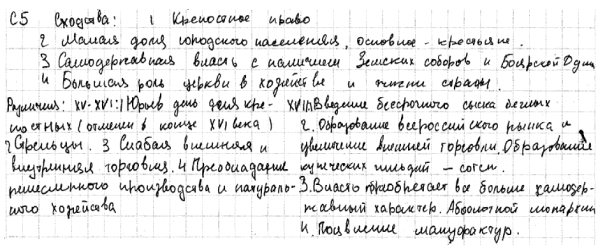 С5 Сходства: 1 Крепостное право
2 Малая доля городского населения, основное - крестьяне.
3 Самодержавная власть с наличием Земских соборов и Боярской Думы
4 Большая роль церкви в хозяйстве и жизни страны.
Различия: XV-XVI: 1) Юрьев день для кре-
постных (отменен в конце XVI века)
2 Стрельцы. 3 Слабая внешняя и
внутренняя торговля. 4 Преобладание
ремесленного производства и натураль-
ного хозяйства
XVII 1. Введение бессрочного сыска беглых
2. Образование всероссийского рынка и
увеличение внешней торговли. Образование
купеческих гильдий - сотен.
3. Власть приобретает все больше самодер-
жавный характер. Абсолютной монархии
4. Появление мануфактур.